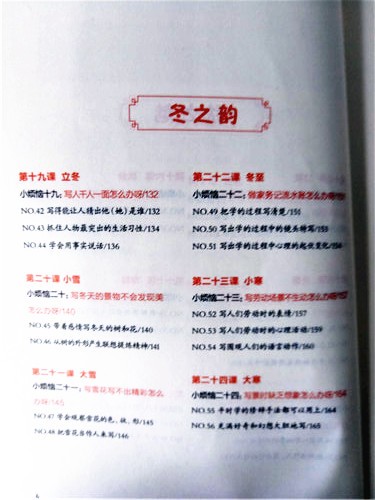 冬之韵
第十九课 立冬
小烦恼十九：写人千人一面怎么办呀/132
NO.42 写得能让人猜出他（她）是谁/132
NO.43 抓住人物最突出的生活习性/134
NO.44 学会用事实说话/136
第二十课 小雪
小烦恼二十：写冬天的景物不会发现美
怎么办呀/140
NO.45 带着感情写冬天的树和花/140
NO.46 从树的外形产生联想提炼精神/141
第二十一课 大雪
小烦恼二十一：写雪景写不出精彩怎么
办呀/145
NO.47 学会观察雪花的色、状、形/145
NO.48 把雪花当作人来写/146
第二十二课 冬至
小烦恼二十二：做家务记流水账怎么办呀
NO.49 把学的过程写清楚/151
NO.50 写出学的过程中的镜头特写/153
NO.51 写出学的过程中心理的起伏变化
第二十三课 小寒
小烦恼二十三：写劳动场景不生动怎么办呀/157
NO.52 写人们劳动时的表情/157
NO.53 写人们劳动时的心理活动/159
NO.54 写围观人们的语言动作/160
第二十四课 大寒
小烦恼二十四：写景时缺乏想象怎么办呀/164
NO.55 平时学的修辞手法都可以用上/164
NO.56 充满好奇和幻想大胆地写/165